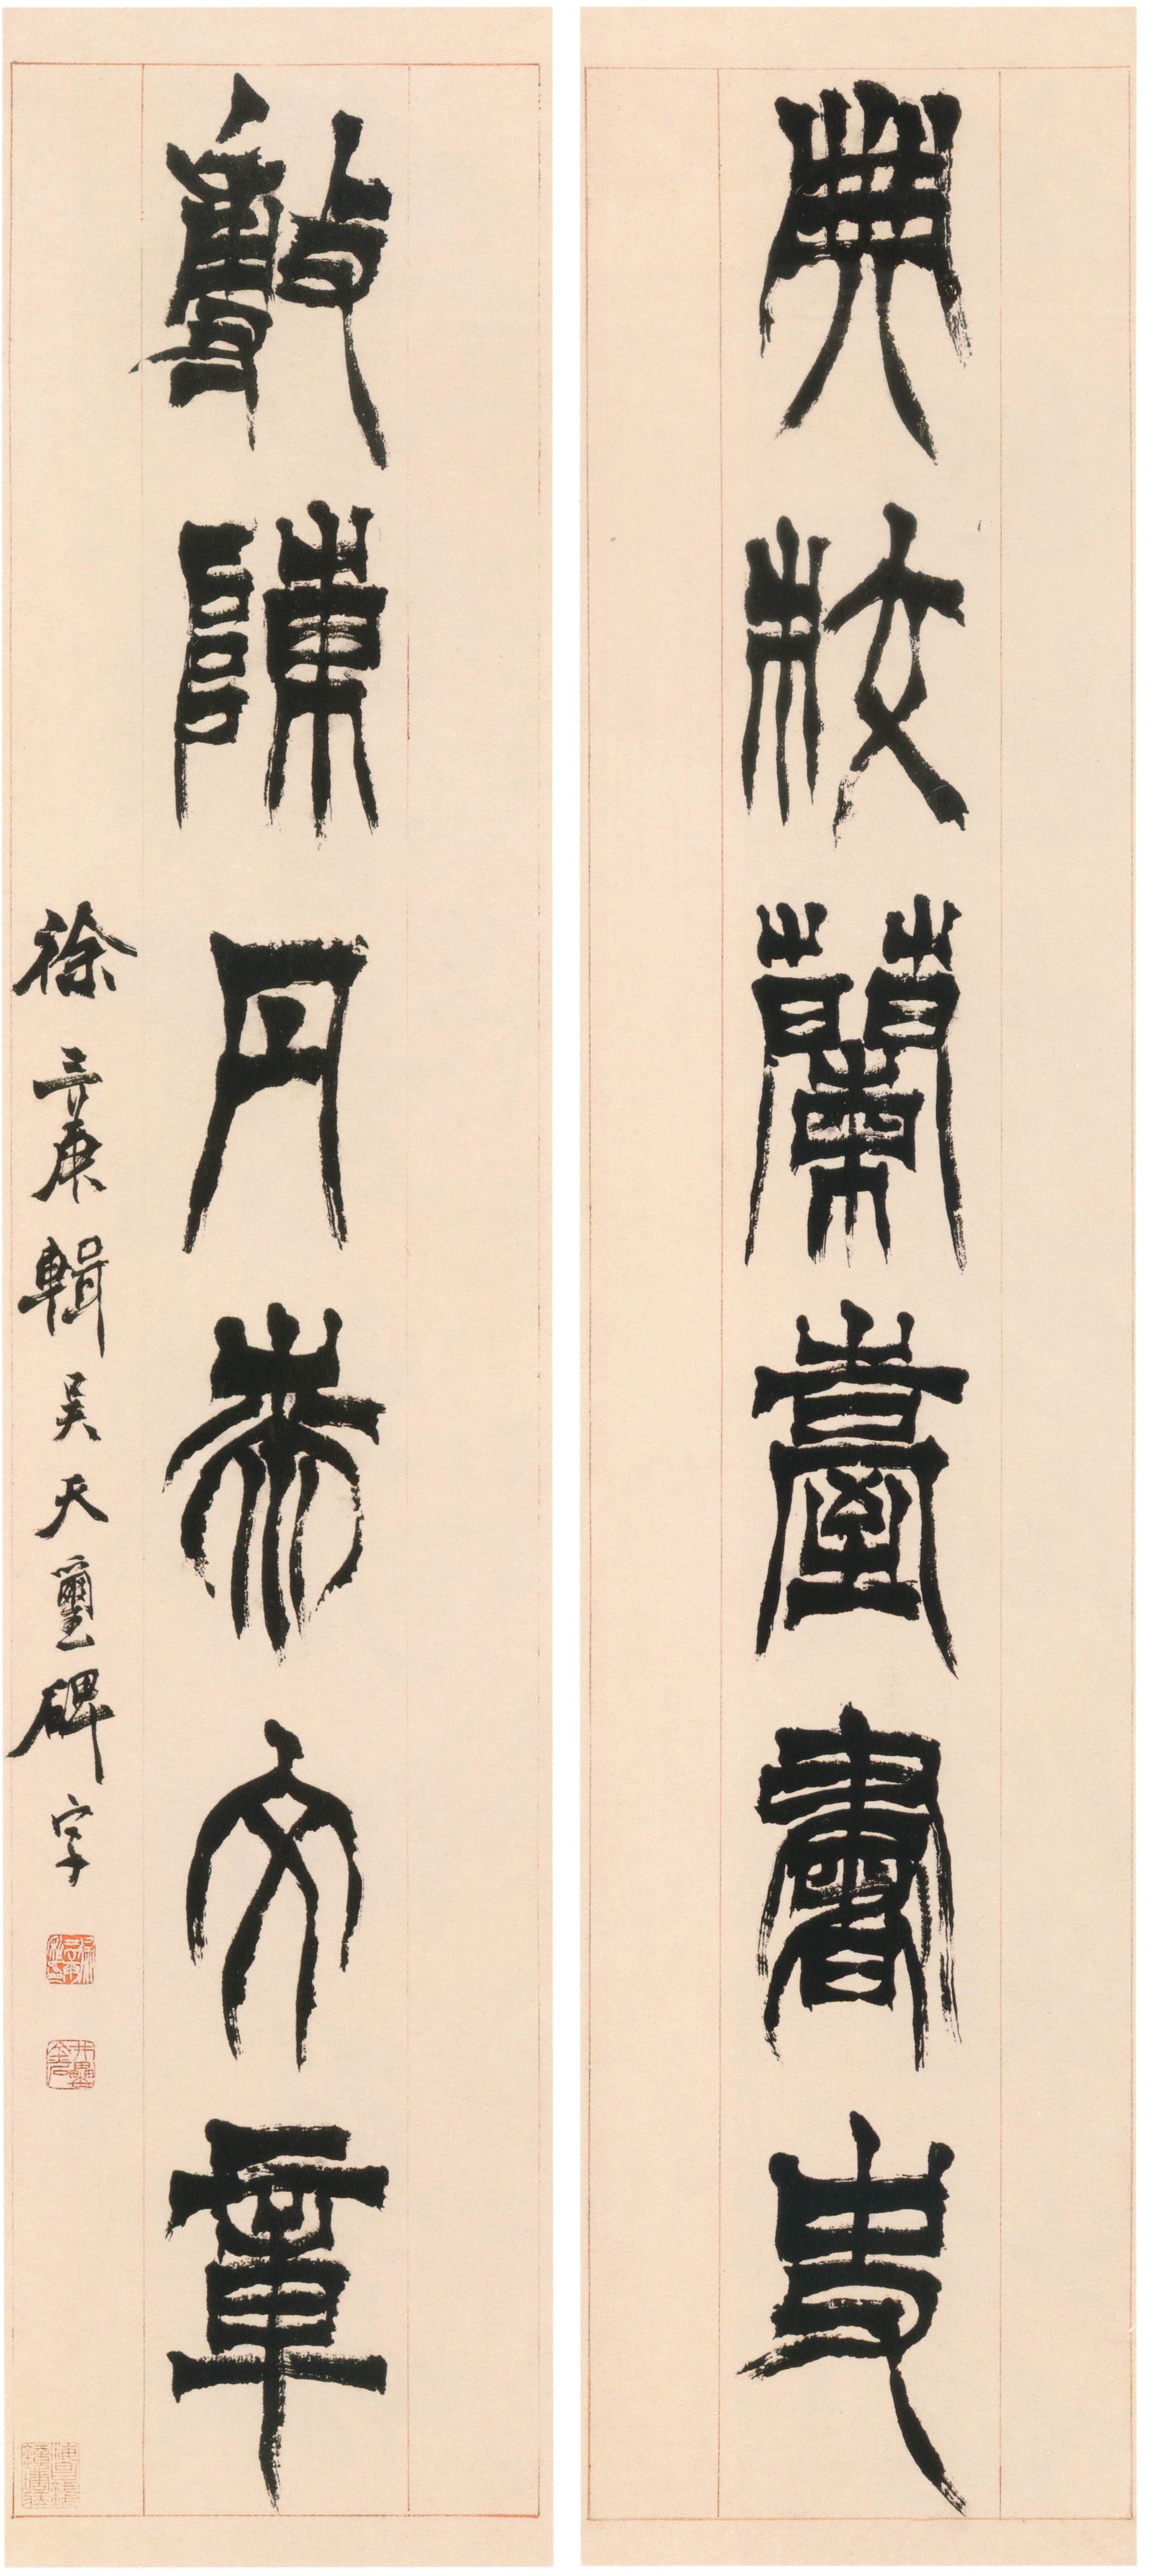 典校蘭臺書史
敷陳丹㡀文章
徐三庚輯吳天璽碑字